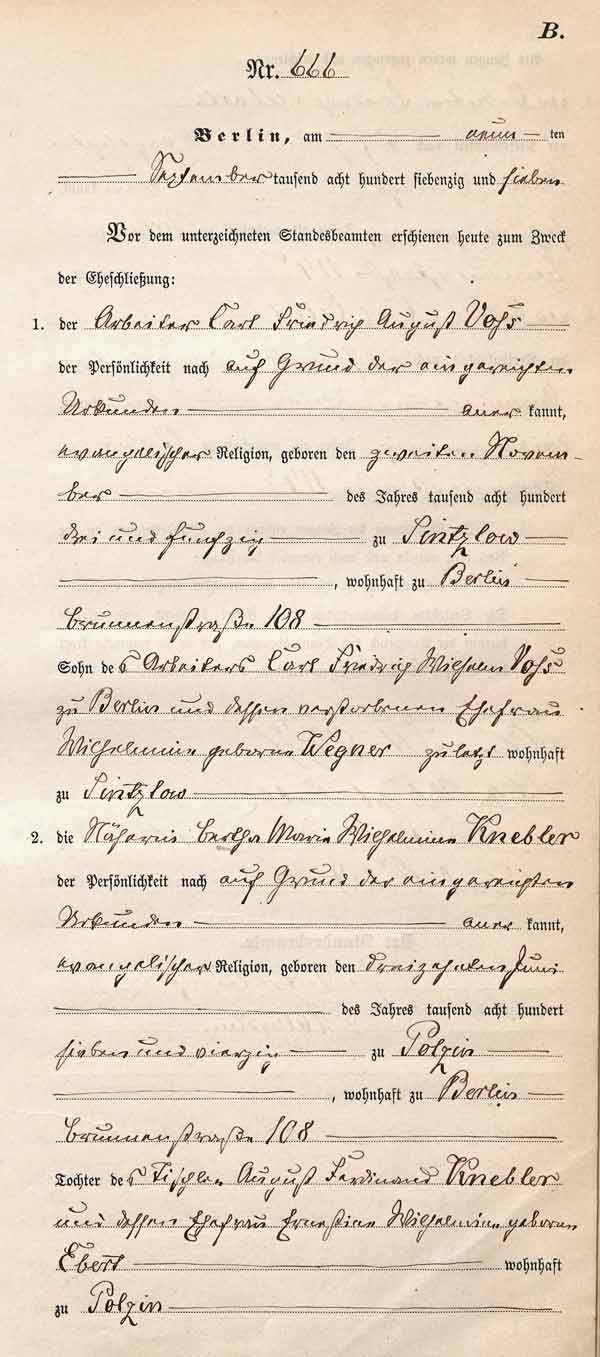 B.
Nr. 666
Berlin, am neun ten
September tausend acht hundert siebenzig und sieben
Vor dem unterzeichneten Standesbeamten erschienen heute zum Zweck
der Eheschließung:
1. der Arbeiter Carl Friedrich August Vohs
der Persönlichkeit nach auf Grund der eingereichten
Urkunden aner kannt,
evangelischer Religion, geboren den zweiten Novem-
ber des Jahres tausend acht hundert
drei und funfzig zu Sintzlow
, wohnhaft zu Berlin
Brunnenstraße 108
Sohn des Arbeiters Carl Friedrich Wilhelm Vohs
zu Berlin und dessen verstorbenen Ehefrau
Wilhelmine geborne Wegner zuletzt wohnhaft
zu Sintzlow
2. die Näherin Bertha Marie Wilhelmine Knebler
der Persönlichkeit nach auf Grund der eingereichten
Urkunden aner kannt,
evangelischer Religion, geboren den dreizehnten Juni
des Jahres tausend acht hundert
sieben und vierzig zu Polzin
, wohnhaft zu Berlin
Brunnenstraße 108
Tochter des Tischler August Ferdinand Knebler
und dessen Ehefrau Ernestine Wilhelmine geboren
Ebert wohnhaft
zu Polzin